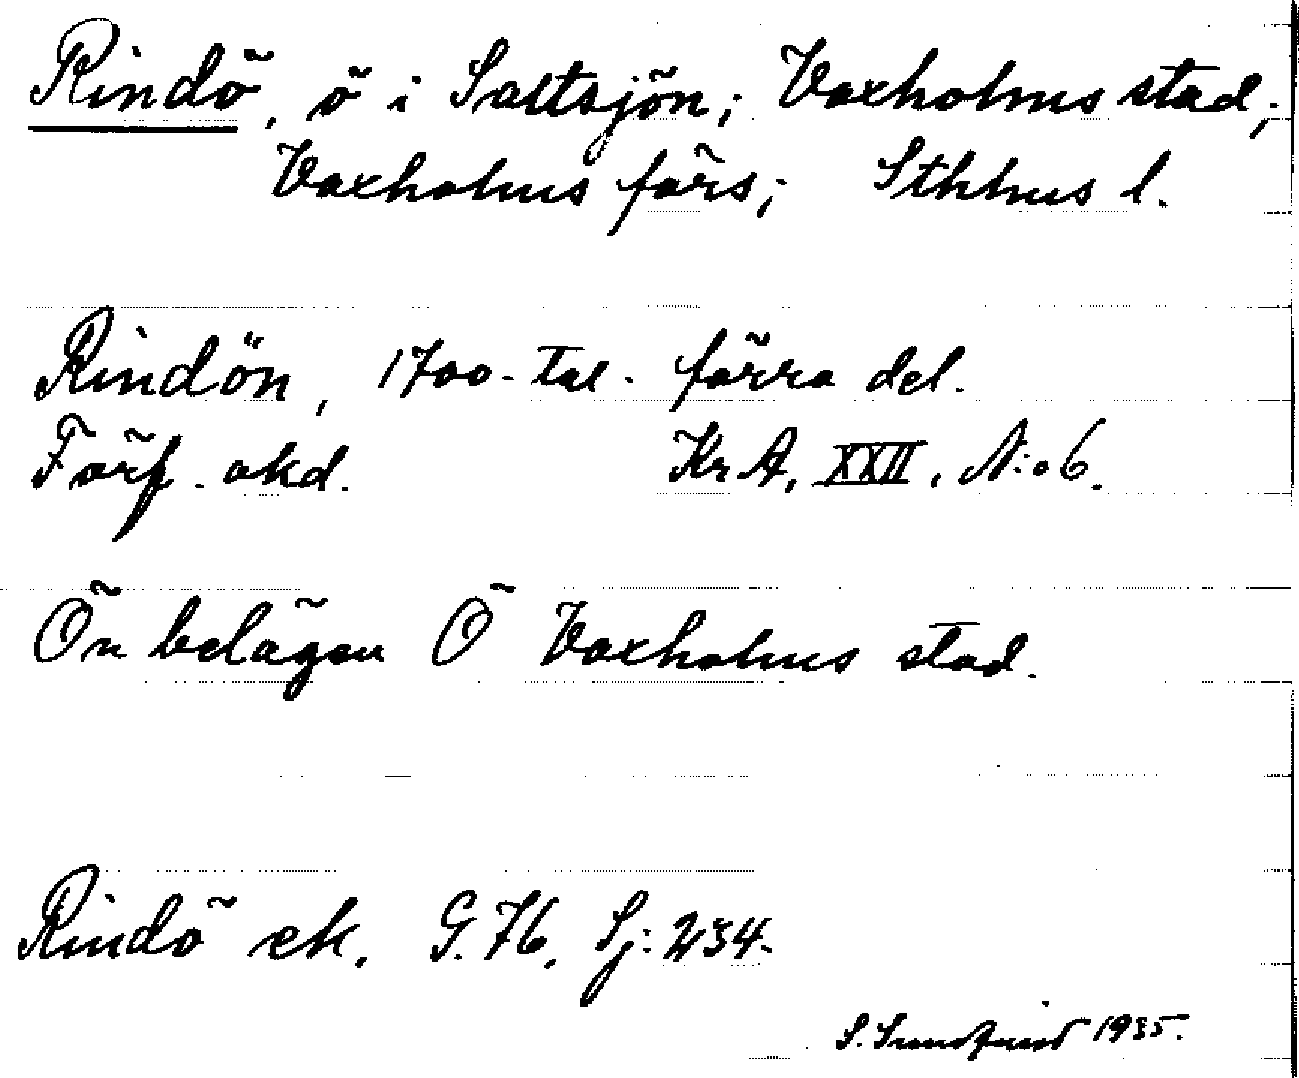 Rindö, ö i Saltsjön; Vaxholms stad;
Vaxholms förs; Sthlms l.
Rindön, 1700-tal. förra del.
Förf. okd. Kr A, XXII, N:o 6.
Ön belägen Ö Vaxholms stad.
Rindö ek. G. 76, Sj: 234.
S. Sundquist 1935.